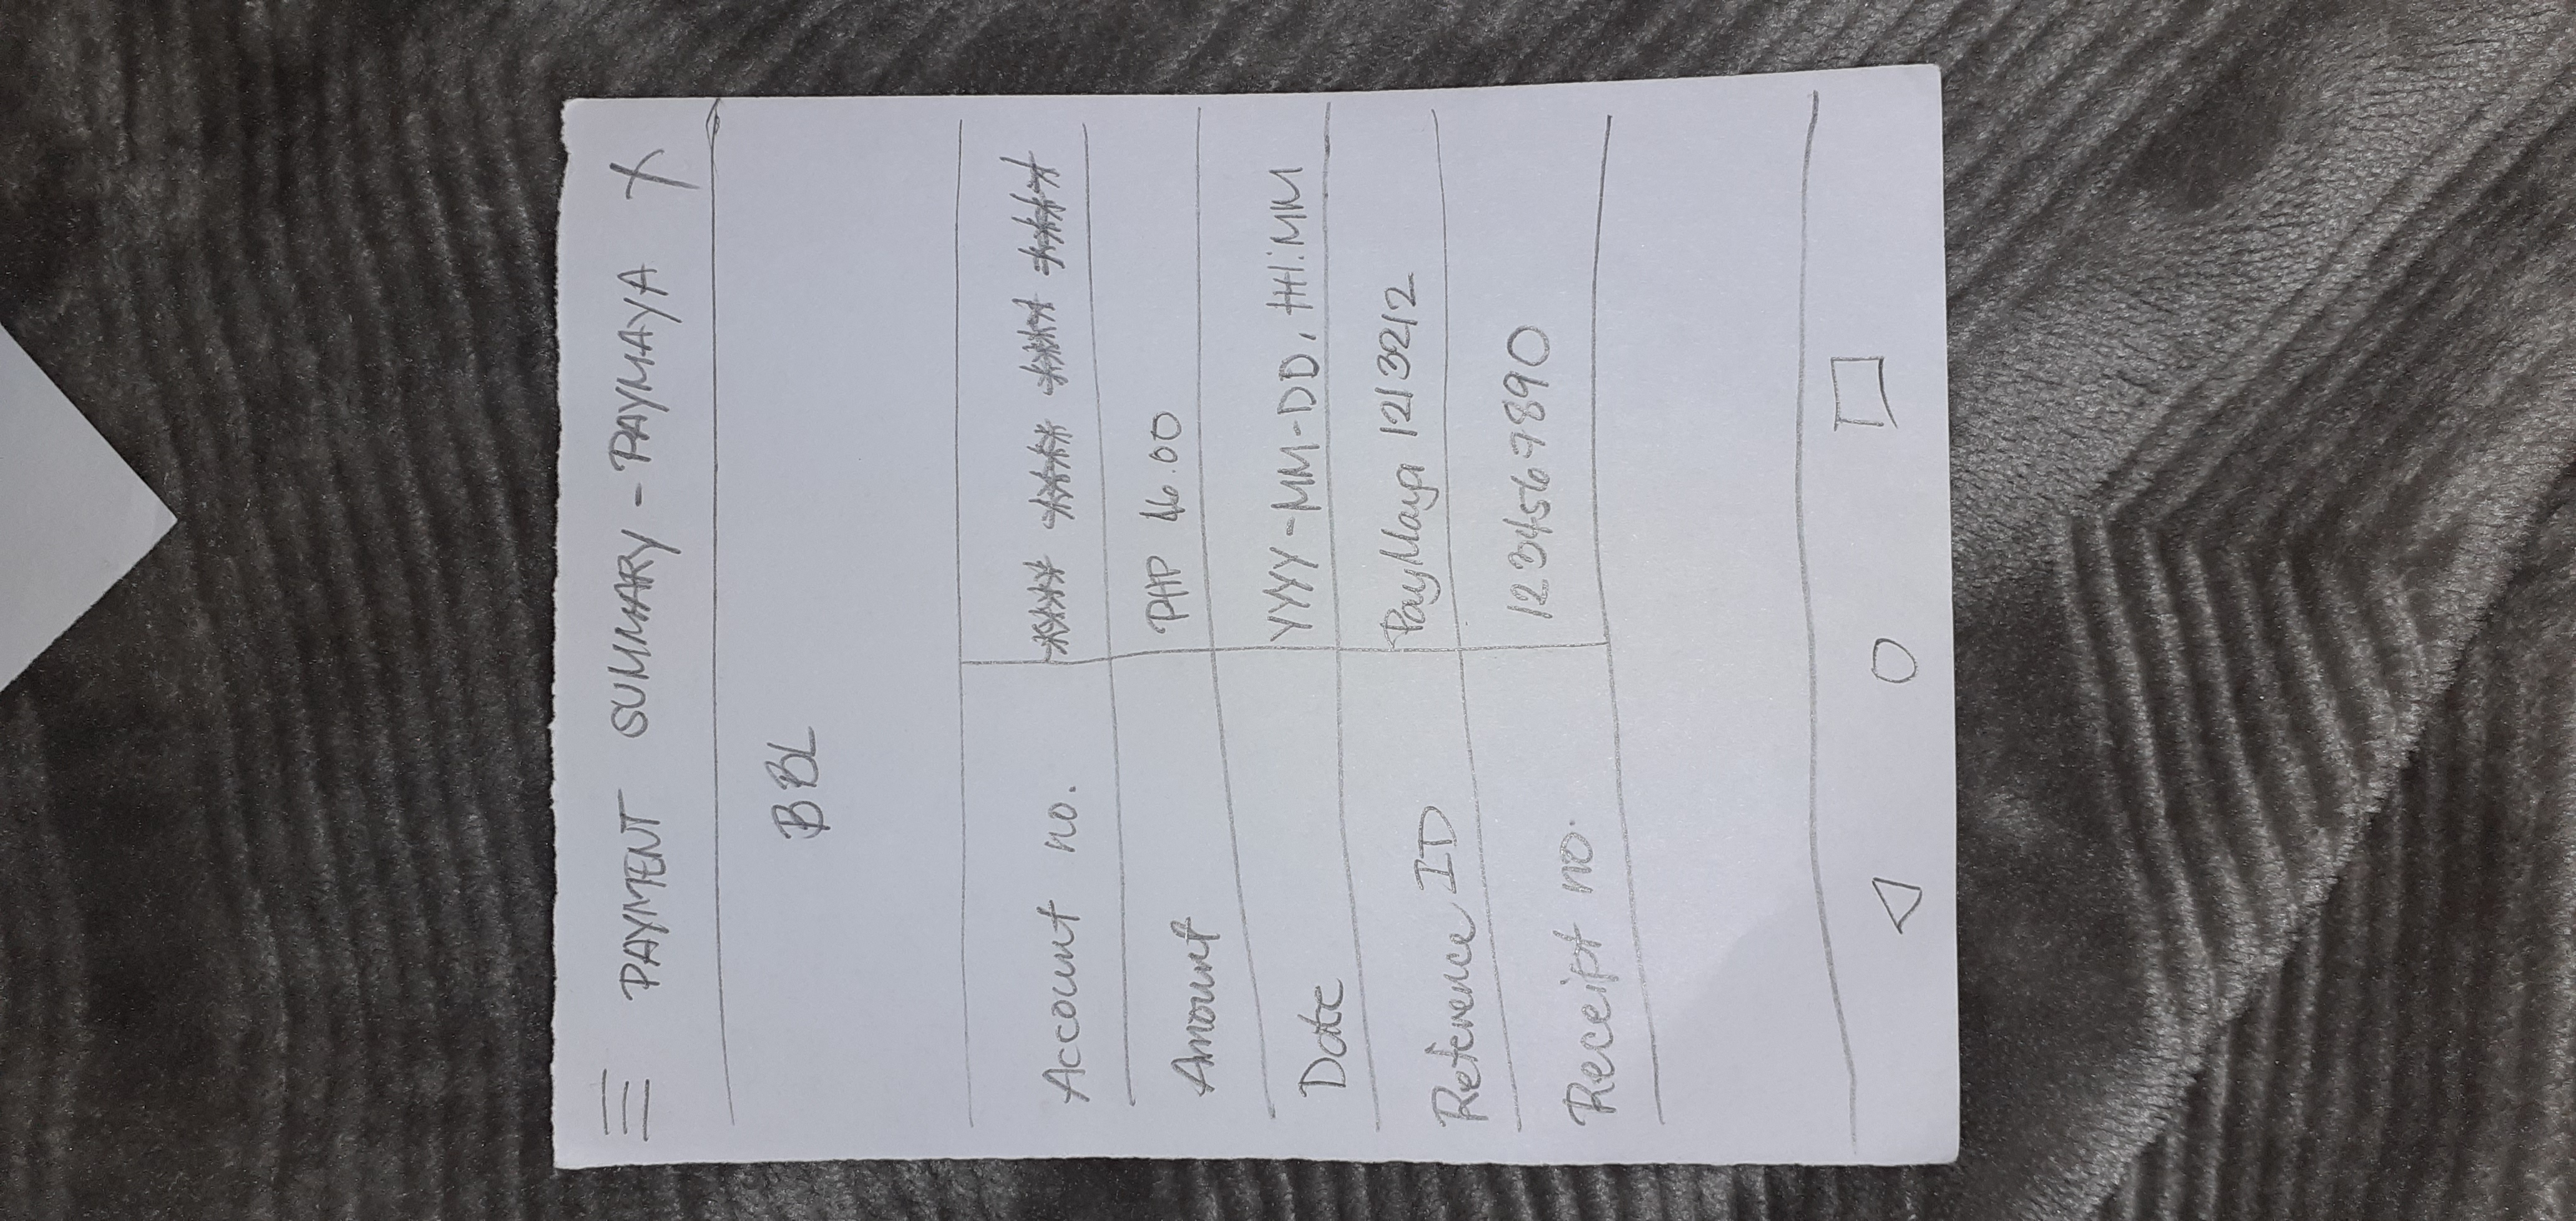 PAYMENT SUMMARY - PAYMAYA X
BBL
Account no. **** **** **** ****
Amount PHP 16.00
Date YYYY-MM-DD, HH:MM
Reference ID PayMaya 1213212
Receipt no. 1234567890